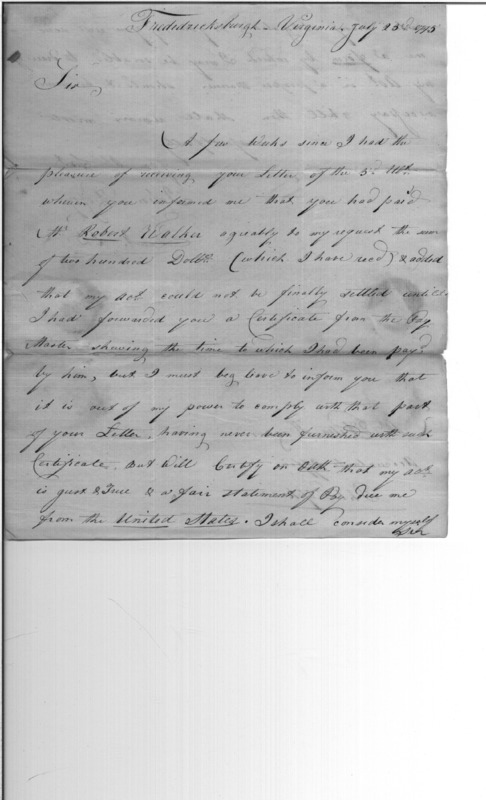 Fredericksburgh - Virginia, July 23d 1795
Sir
A few Weeks since I had the
pleasure of receiving your Letter of the 3d Ulto.
wherein you informed me that you had paid
Mr. Robert Walker agreably to my request the sum
of two hundred Dolls. (which I have recd) & added
that my act. could not be finally settled until
I had forwarded you a Certificate from the Pay
Master shewing the time to which I had been pay'd
by him, but I must beg leave to inform you that
it is out of my power to comply with that part
of your Letter, having never been furnished with such
Certificate. But Will Certify on Oath that my act.
is just & True & a fair statement of Pay due me
from the United States. I shall consider myself